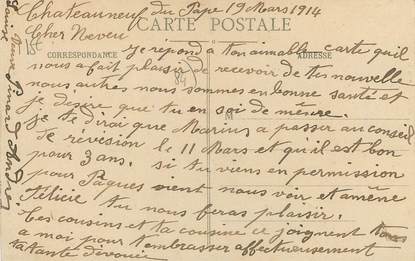 Chateauneuf du Pape 19 Mars 1914
CARTE POSTALE
Cher Neveu
CORRESPONDANCE
ADRESSE
je repond a ton aimable carte qu'il
nous a fait plaisir de recevoir de tes nouvelle
nous autres nous sommes en bonne santé et
je desire que tu en soi de même.
M
je te dirai que Marius a passer au conseil
de revision le 11 Mars et qu'il est bon
pour 3 ans. si tu viens en permission
pour Paques vient nous voir et amène
Félicie tu nous feras plaisir.
Tes cousins et ta cousine ce joignent tous
a moi pour t'embrasser affectueusement
ta tante dévouée
Louise Veuve